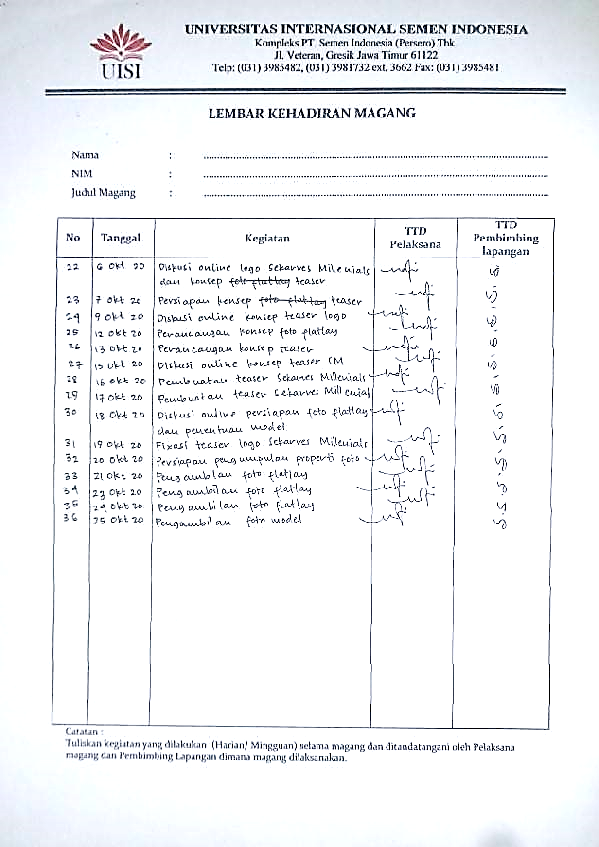 UISI
UNIVERSITAS INTERNASIONAL SEMEN INDONESIA
Kompleks PT. Semen Indonesia (Persero) Tbk
Jl. Veteran, Gresik Jawa Timur 61122
Telp: (031) 3985482, (031) 3981732 ext. 3662 Fax: (031) 3985481
LEMBAR KEHADIRAN MAGANG
Nama :
NIM :
Judul Magang :
No Tanggal Kegiatan TTD Pelaksana TTD Pembimbing lapangan
22 6 Okt 20 Diskusi online logo Sekarves Milenials
dan konsep foto flatlay teaser
23 7 Okt 20 Persiapan konsep foto flatlay teaser
24 9 Okt 20 Diskusi online konsep teaser logo
25 12 Okt 20 Perancangan konsep foto flatlay
26 13 Okt 20 Perancangan konsep teaser
27 15 Okt 20 Diskusi online konsep teaser SM
28 16 Okt 20 Pembuatan teaser Sekarves Milenials
29 17 Okt 20 Pembuatan teaser Sekarves Millenial
30 18 Okt 20 Diskusi online persiapan foto flatlay
dan penentuan model
31 19 Okt 20 Fixasi teaser logo Sekarves Milenials
32 20 Okt 20 Persiapan pengumpulan properti foto
33 21 Okt 20 Pengambilan foto flatlay
34 23 Okt 20 Pengambilan foto flatlay
35 24 Okt 20 Pengambilan foto flatlay
36 25 Okt 20 Pengambilan foto model
Catatan :
Tuliskan kegiatan yang dilakukan (Harian/ Mingguan) selama magang dan ditandatangani oleh Pelaksana
magang dan Pembimbing Lapangan dimana magang dilaksanakan.